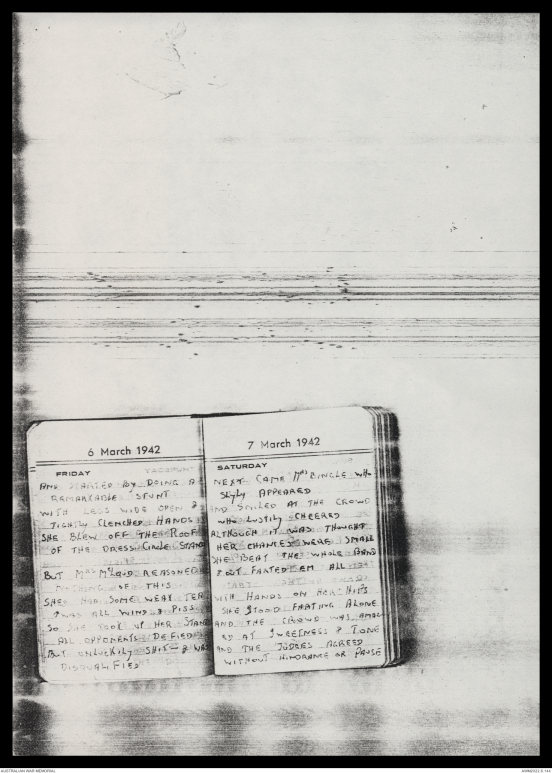 6 March 1942
FRIDAY
AND STARTED BY DOING A
REMARKABLE STUNT
WITH LEGS WIDE OPEN &
TIGHTLY CLENCHED HANDS
SHE BLEW OFF THE ROOF
OF THE DRESS CIRCLE STAND
BUT MRS McLAUD REASONED
NOTHING OF THIS
SHE HAD SOME WEAK TEA
& WAS ALL WIND & PISS
SO SHE TOOK UP HER STAND
ALL OPPONENTS DEFIED
BUT UNLUCKILY SHIT — & WAS
DISQUALIFIED
7 March 1942
SATURDAY
NEXT CAME MRS BINGLE WHO
SHYLY APPEARED
AND SMILED AT THE CROWD
WHO LUSTILY CHEERED
ALTHOUGH IT WAS THOUGHT
HER CHANCES WERE SMALL
SHE BEAT THE WHOLE BAND
& OUT FARTED EM ALL
WITH HANDS ON HER HIPS
SHE STOOD FARTING ALONE
AND THE CROWD WAS AMAZ
ED AT SWEETNESS & TONE
AND THE JUDGES AGREED
WITHOUT HINDRANCE OR PAUSE
AUSTRALIAN WAR MEMORIAL